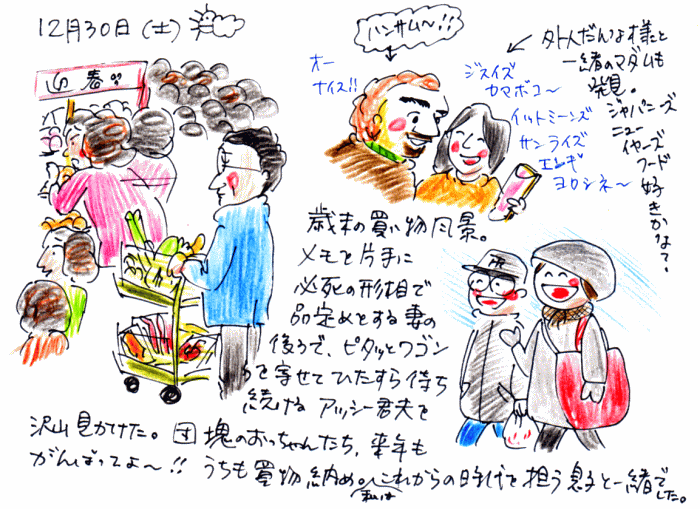 12月30日(土)
迎春
ハンサム〜!!
オー
ナイス!!
ジスイズ
カマボコ〜
イットミーンズ
サンライズ
エンギ
ヨロシネ〜
外人だんな様と
一緒のマダムも
発見。
ジャパニーズ
ニュー
イヤーズ
フード
好きかな?
歳末の買い物風景。
メモを片手に
必死の形相で
品定めをする妻の
後ろで、ピタッとワゴン
を寄せてひたすら待ち
続ける アッシー君夫を
沢山見かけた。団塊のおっちゃんたち、来年も
がんばってよ〜!! うちも買物納め。私はこれからの時代を担う息子と一緒で
した。